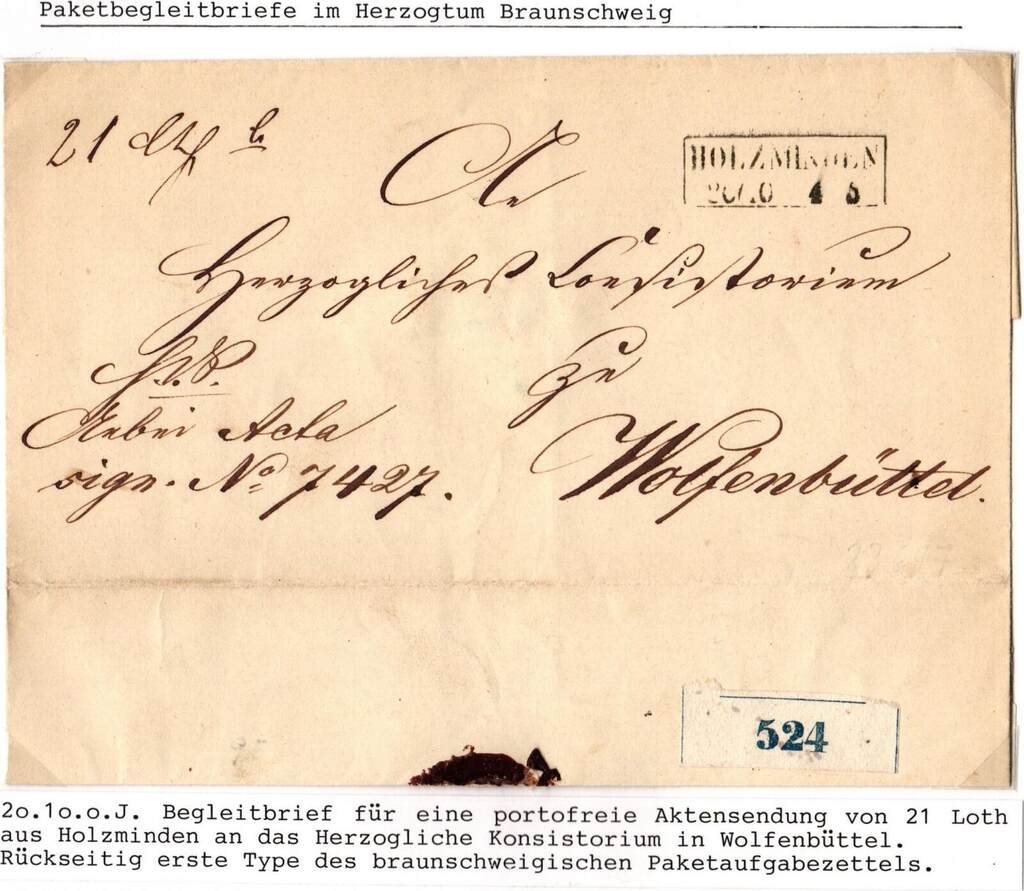 Paketbegleitbriefe im Herzogtum Braunschweig
21 Lth
An
HOLZMINDEN
20/10 4 5
Herzogliches Consistorium
H.S.
zu
Nebei Acta
sign. No 7427.
Wolfenbüttel.
524
2o.1o.o.J. Begleitbrief für eine portofreie Aktensendung von 21 Loth
aus Holzminden an das Herzogliche Konsistorium in Wolfenbüttel.
Rückseitig erste Type des braunschweigischen Paketaufgabezettels.